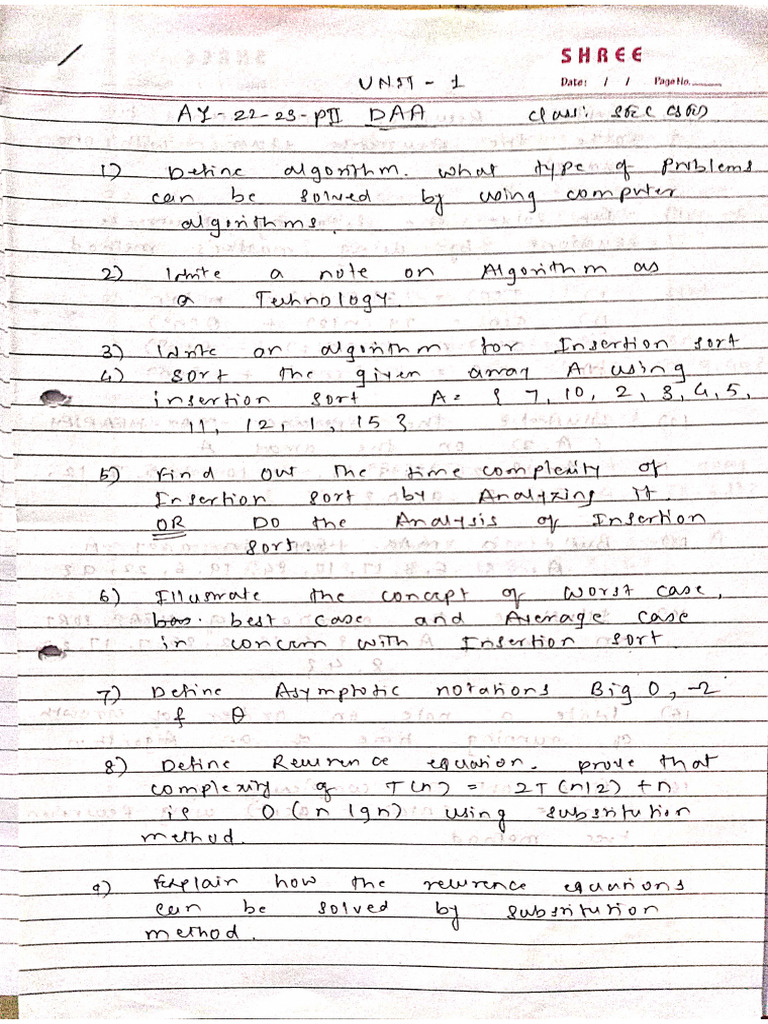 SHREE
UNIT - 1
Date: / / Page No.
AY-22-23-PII DAA class:
1) Define algorithm. what type of problems
can be solved by using computer
algorithms.
2) Write a note on Algorithm as
a Technology.
3) Write an algorithm for Insertion sort
4) sort the given array A using
insertion sort A = { 7, 10, 2, 3, 4, 5,
11, 12, 1, 15 }
5) Find out the time complexity of
Insertion sort by Analyzing it.
OR Do the Analysis of Insertion
sort.
6) Illustrate the concept of worst case,
best case and Average case
in concern with Insertion sort.
7) Define Asymptotic notations Big O, -2
f θ
8) Define Recurrence equation. prove that
complexity of T(n) = 2T(n/2) + n
is O(n lgn) using substitution
method.
9) Explain how the recurrence equations
can be solved by substitution
method.